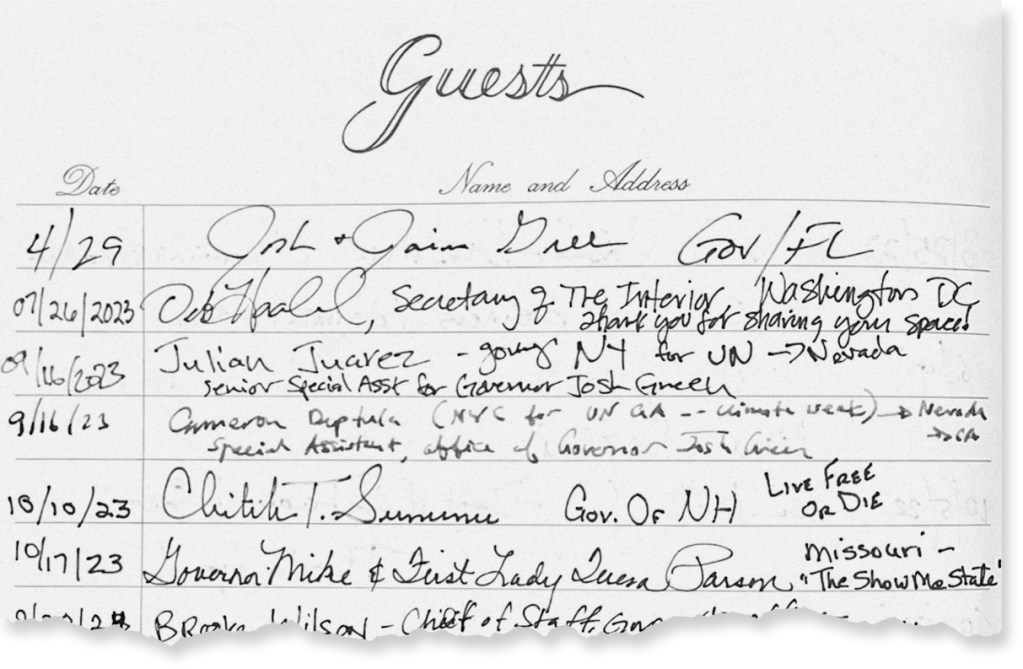 Guests
Date Name and Address
4/29 Josh + Jaime Green Gov/FL
07/26/2023 Deb Haaland, Secretary of The Interior, Washington DC
Thank you for sharing your space!
09/16/2023 Julian Juarez - going NY for UN → Nevada
Senior Special Asst for Governor Josh Green
9/16/23 Cameron Deptula (NYC for UN GA -- climate week) → Nevada
Special Assistant, office of Governor Josh Green → CA
10/10/23 T. Sununu Gov. OF NH LIVE FREE
OR DIE
10/17/23 Governor Mike & First Lady Teresa Parson, Missouri -
"The Show Me State"
Brooke Wilson - Chief of Staff,